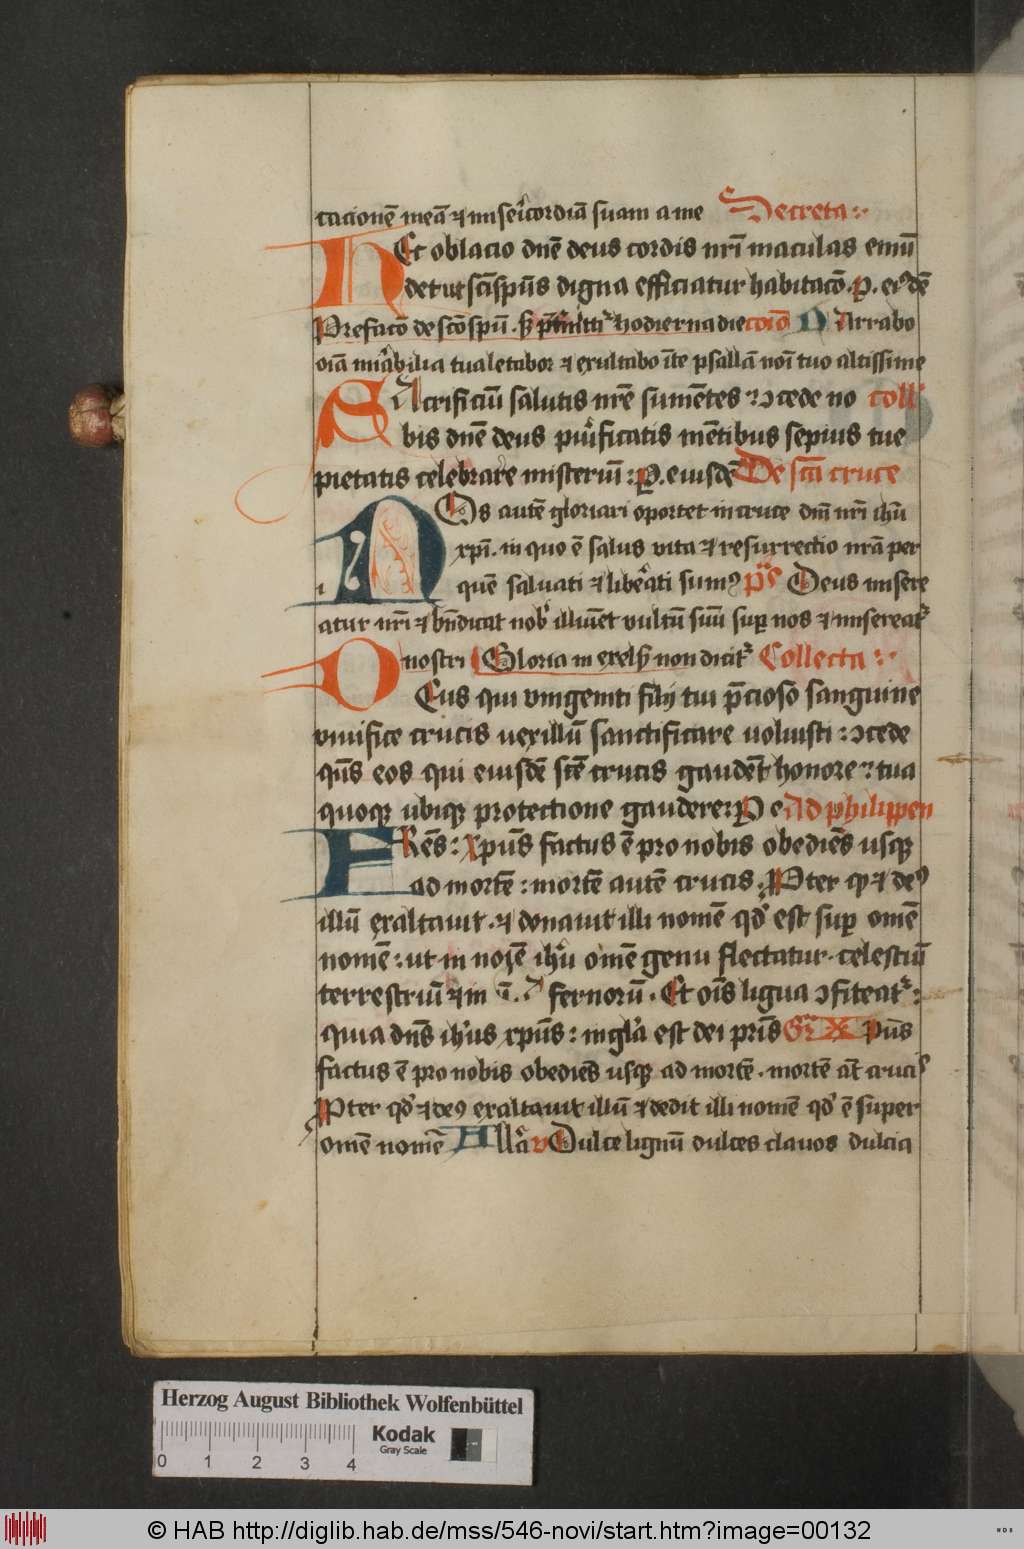 tacionē meā ⁊ misericordiā suam a me Secreta
HEc oblacio dn̄e deus cordis nr̄i maculas emū
det ut sc̄i spūs digna efficiatur habitacō. P. ei⁹dē
Prefacō de sc̄o spū. hodierna die cōiō Narrabo
oīa mirabilia tua letabor ⁊ exultabo īte psallā noī tuo altissime
SAcrificiū salutis nr̄e sumētes ɔcede no coll
bis dn̄e deus purificatis mētibus sepius tue
pietatis celebrare misteriū: P. eiusdē De sc̄a cruce
NOs autē gloriari oportet in cruce dn̄i nr̄i ihū
xpī. in quo ē salus vita ⁊ resurrectio nr̄a per
quē saluati ⁊ liberati sum⁹ ps̄ Deus misere
atur nr̄i ⁊ bn̄dicat nob illūīet vultū suū sup nos ⁊ misereat
nostri Gloria in excels̄ non dicit Collecta
DEus qui vnigeniti filij tui p̄ciosō sanguine
viuifice crucis uexillū sanctificare uoluisti: ɔcede
qs̄ eos qui eiusdē scē crucis gaudēt honore: tua
quoqꝫ ubiqꝫ protectione gaudere: P e Ad philippen
FRēs: xpūs factus ē pro nobis obediēs usqꝫ
ad mortē: mortē autē crucis. Pter qđ ⁊ de⁹
illū exaltauit. ⁊ donauit illi nomē qđ est sup omē
nomē: ut in noīe ihū omē genu flectatur. celestiū
terrestriū ⁊ in ī. fernorū. Et oīs ligua ɔfiteat:
quia dn̄s ihūs xpūs: in glā est dei prīs Gr̄ Xpūs
factus ē pro nobis obediēs usqꝫ ad mortē. mortē aūt crucis
Pter qđ ⁊ de⁹ exaltauit illū ⁊ dedit illi nomē qđ ē super
omē nomē Allā v Dulce lignū dulces clauos dulcia
Herzog August Bibliothek Wolfenbüttel
Kodak
Gray Scale
0 1 2 3 4
© HAB http://diglib.hab.de/mss/546-novi/start.htm?image=00132